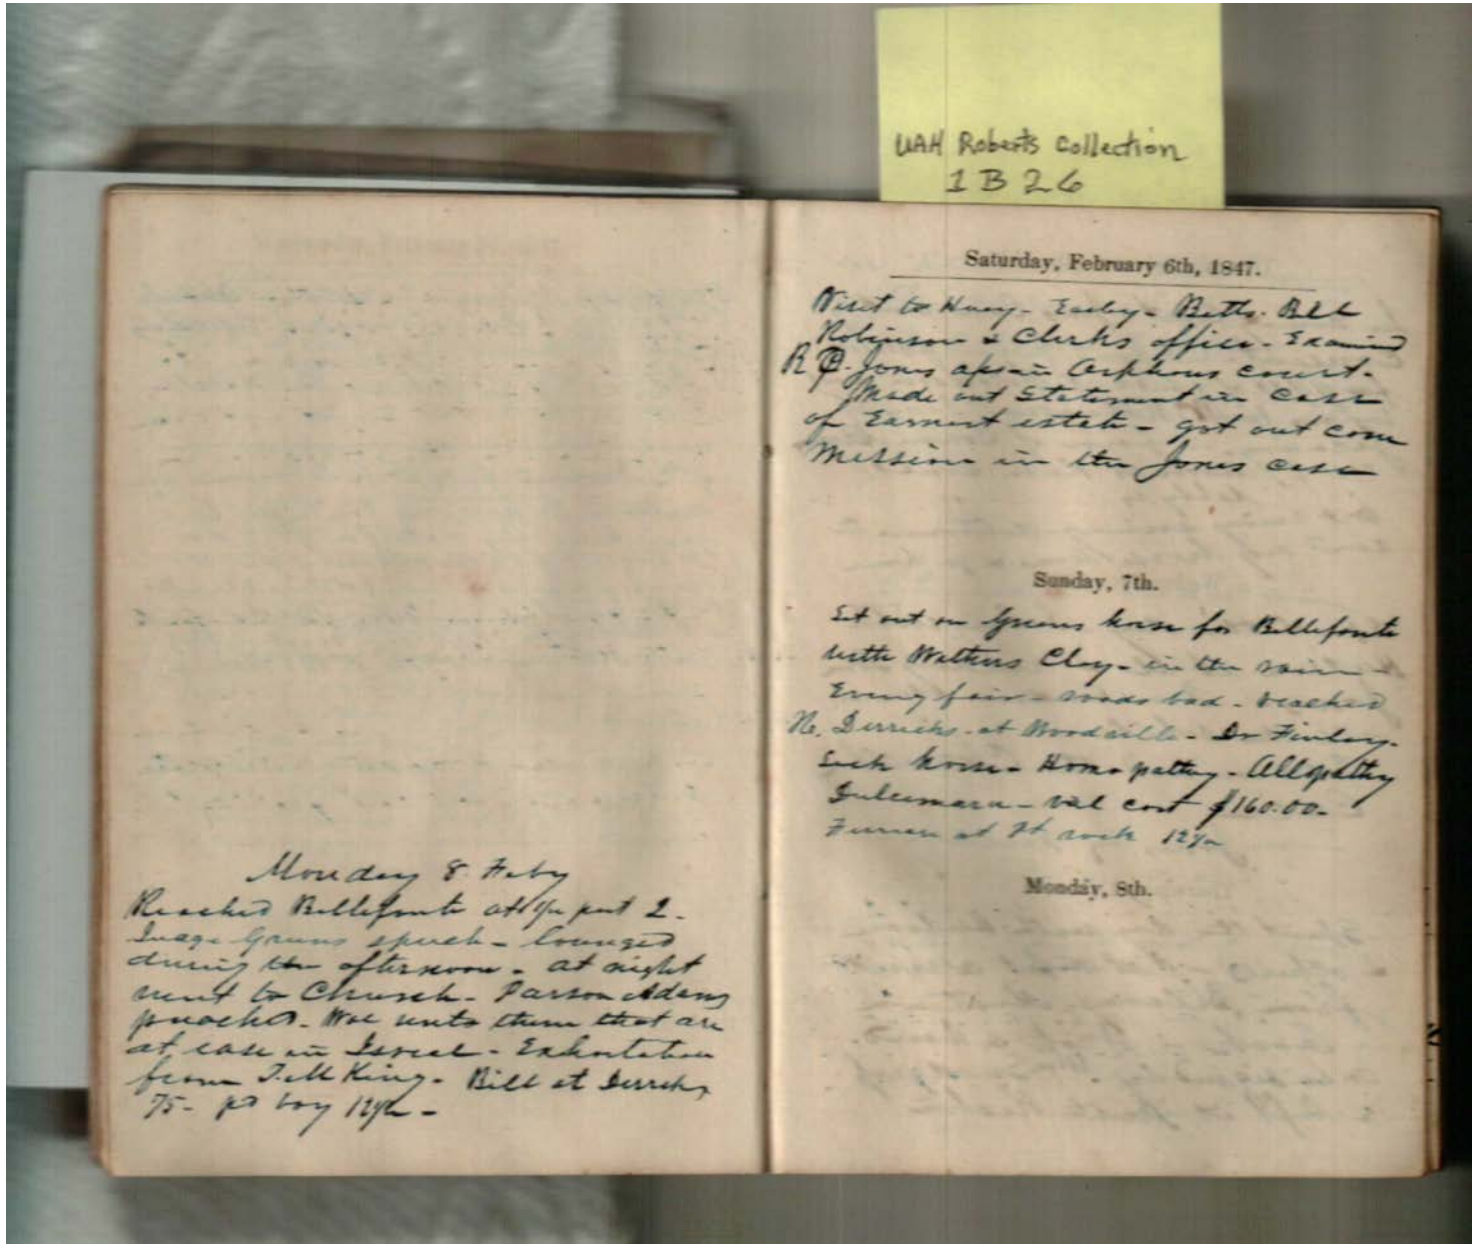 UAH Roberts Collection
1B26
Monday 8 Feby
Reached Bellefonte at 1/2 past 2-
speech - lounged
during the afternoon - at night
went to Church - Parson Adams
preached. Woe unto them that are
at ease in Israel - Exhortation
from King - Bill at Derricks
75- pd boy 12 1/2 -
Saturday, February 6th, 1847.
Visit to - Betts. Bell
Robinson & Clerks office - Examined
R P. Jones Orphans court.
Made out Statement in case
of Earnest estate - got out com
mission in the Jones case
Sunday, 7th.
Set out on Greens horse for Bellefonte
with Withers Clay - in the rain -
Evening fair - roads bad - reached
Derricks at Woodville - Dr Finley -
Sick horse - Homopathy - Allopathy
Dulcamara - vial cost $160.00-
at 12 1/2
Monday, 8th.